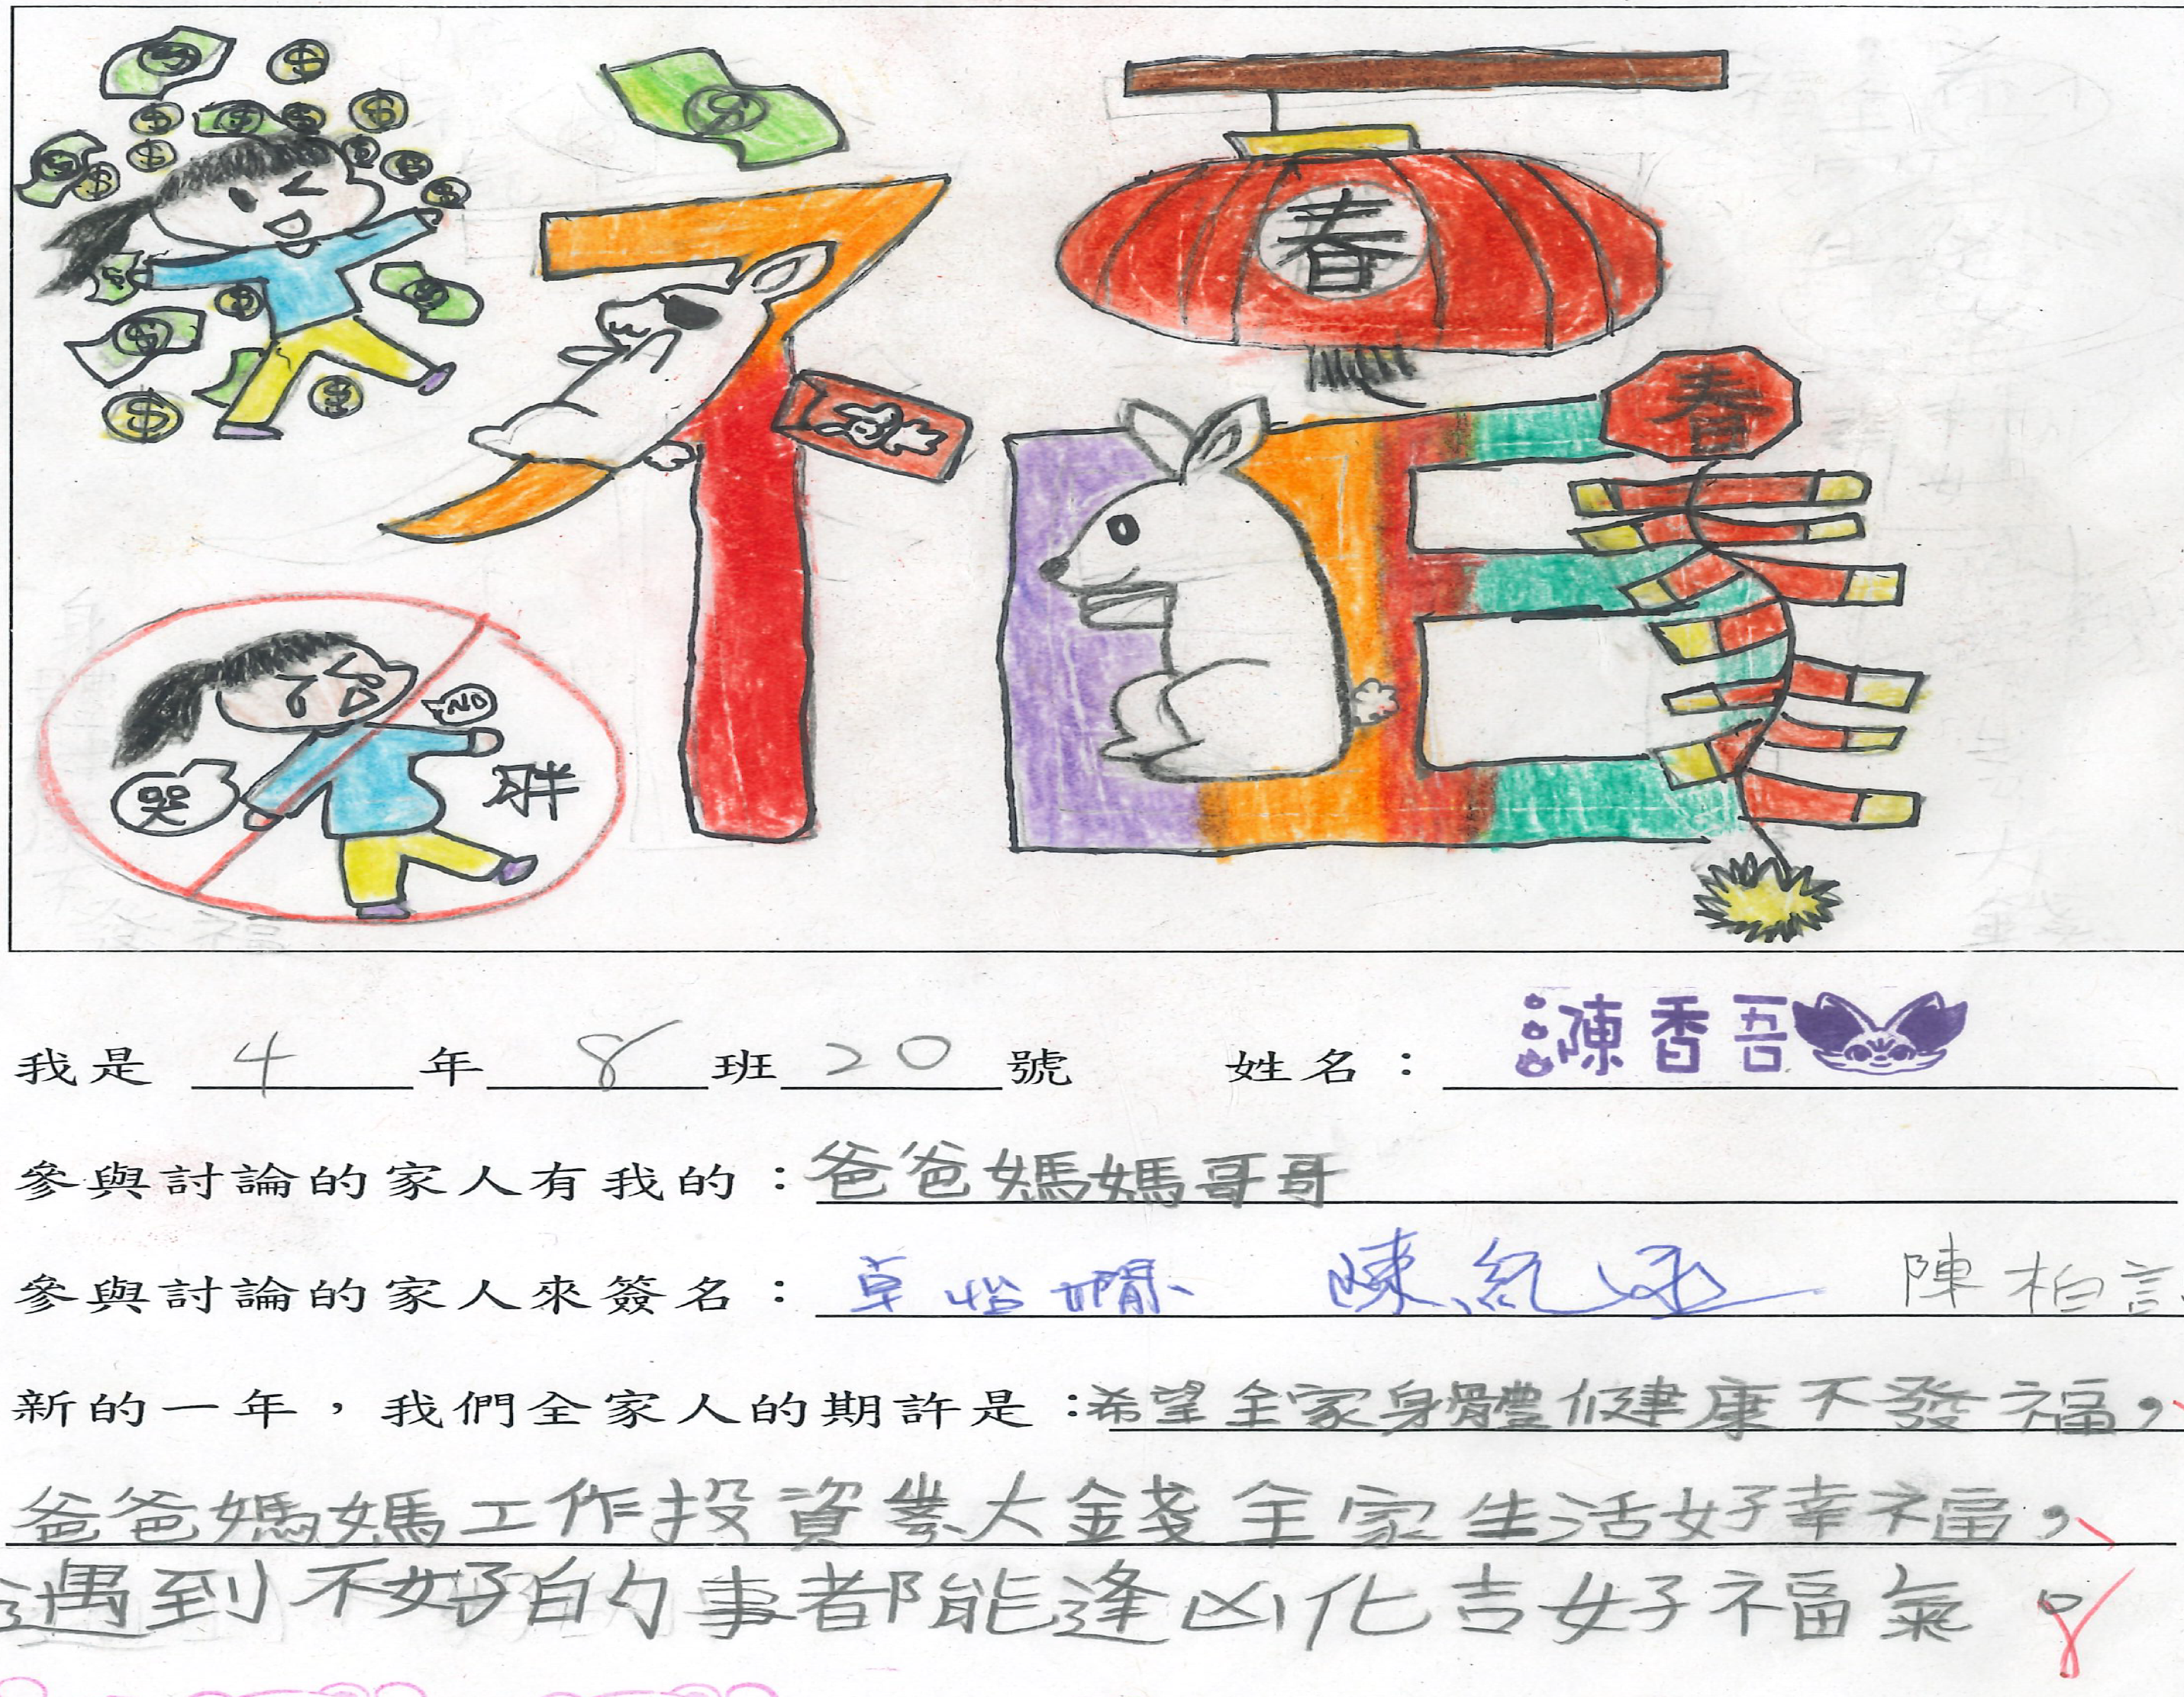 $
春
春
NO
哭
胖
我是 4 年 8 班 20 號 姓名：陳香吾
參與討論的家人有我的：爸爸媽媽哥哥
參與討論的家人來簽名：卓怡嫺 陳紀丞 陳柏言
新的一年，我們全家人的期許是：希望全家身體健康不發福，
爸爸媽媽工作投資業大錢全家生活好幸福，
遇到不好的事都能逢凶化吉好福氣。